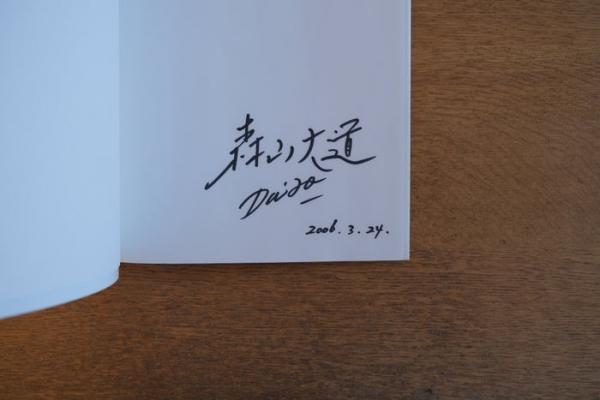 森山大道
Daido
2006.3.24.